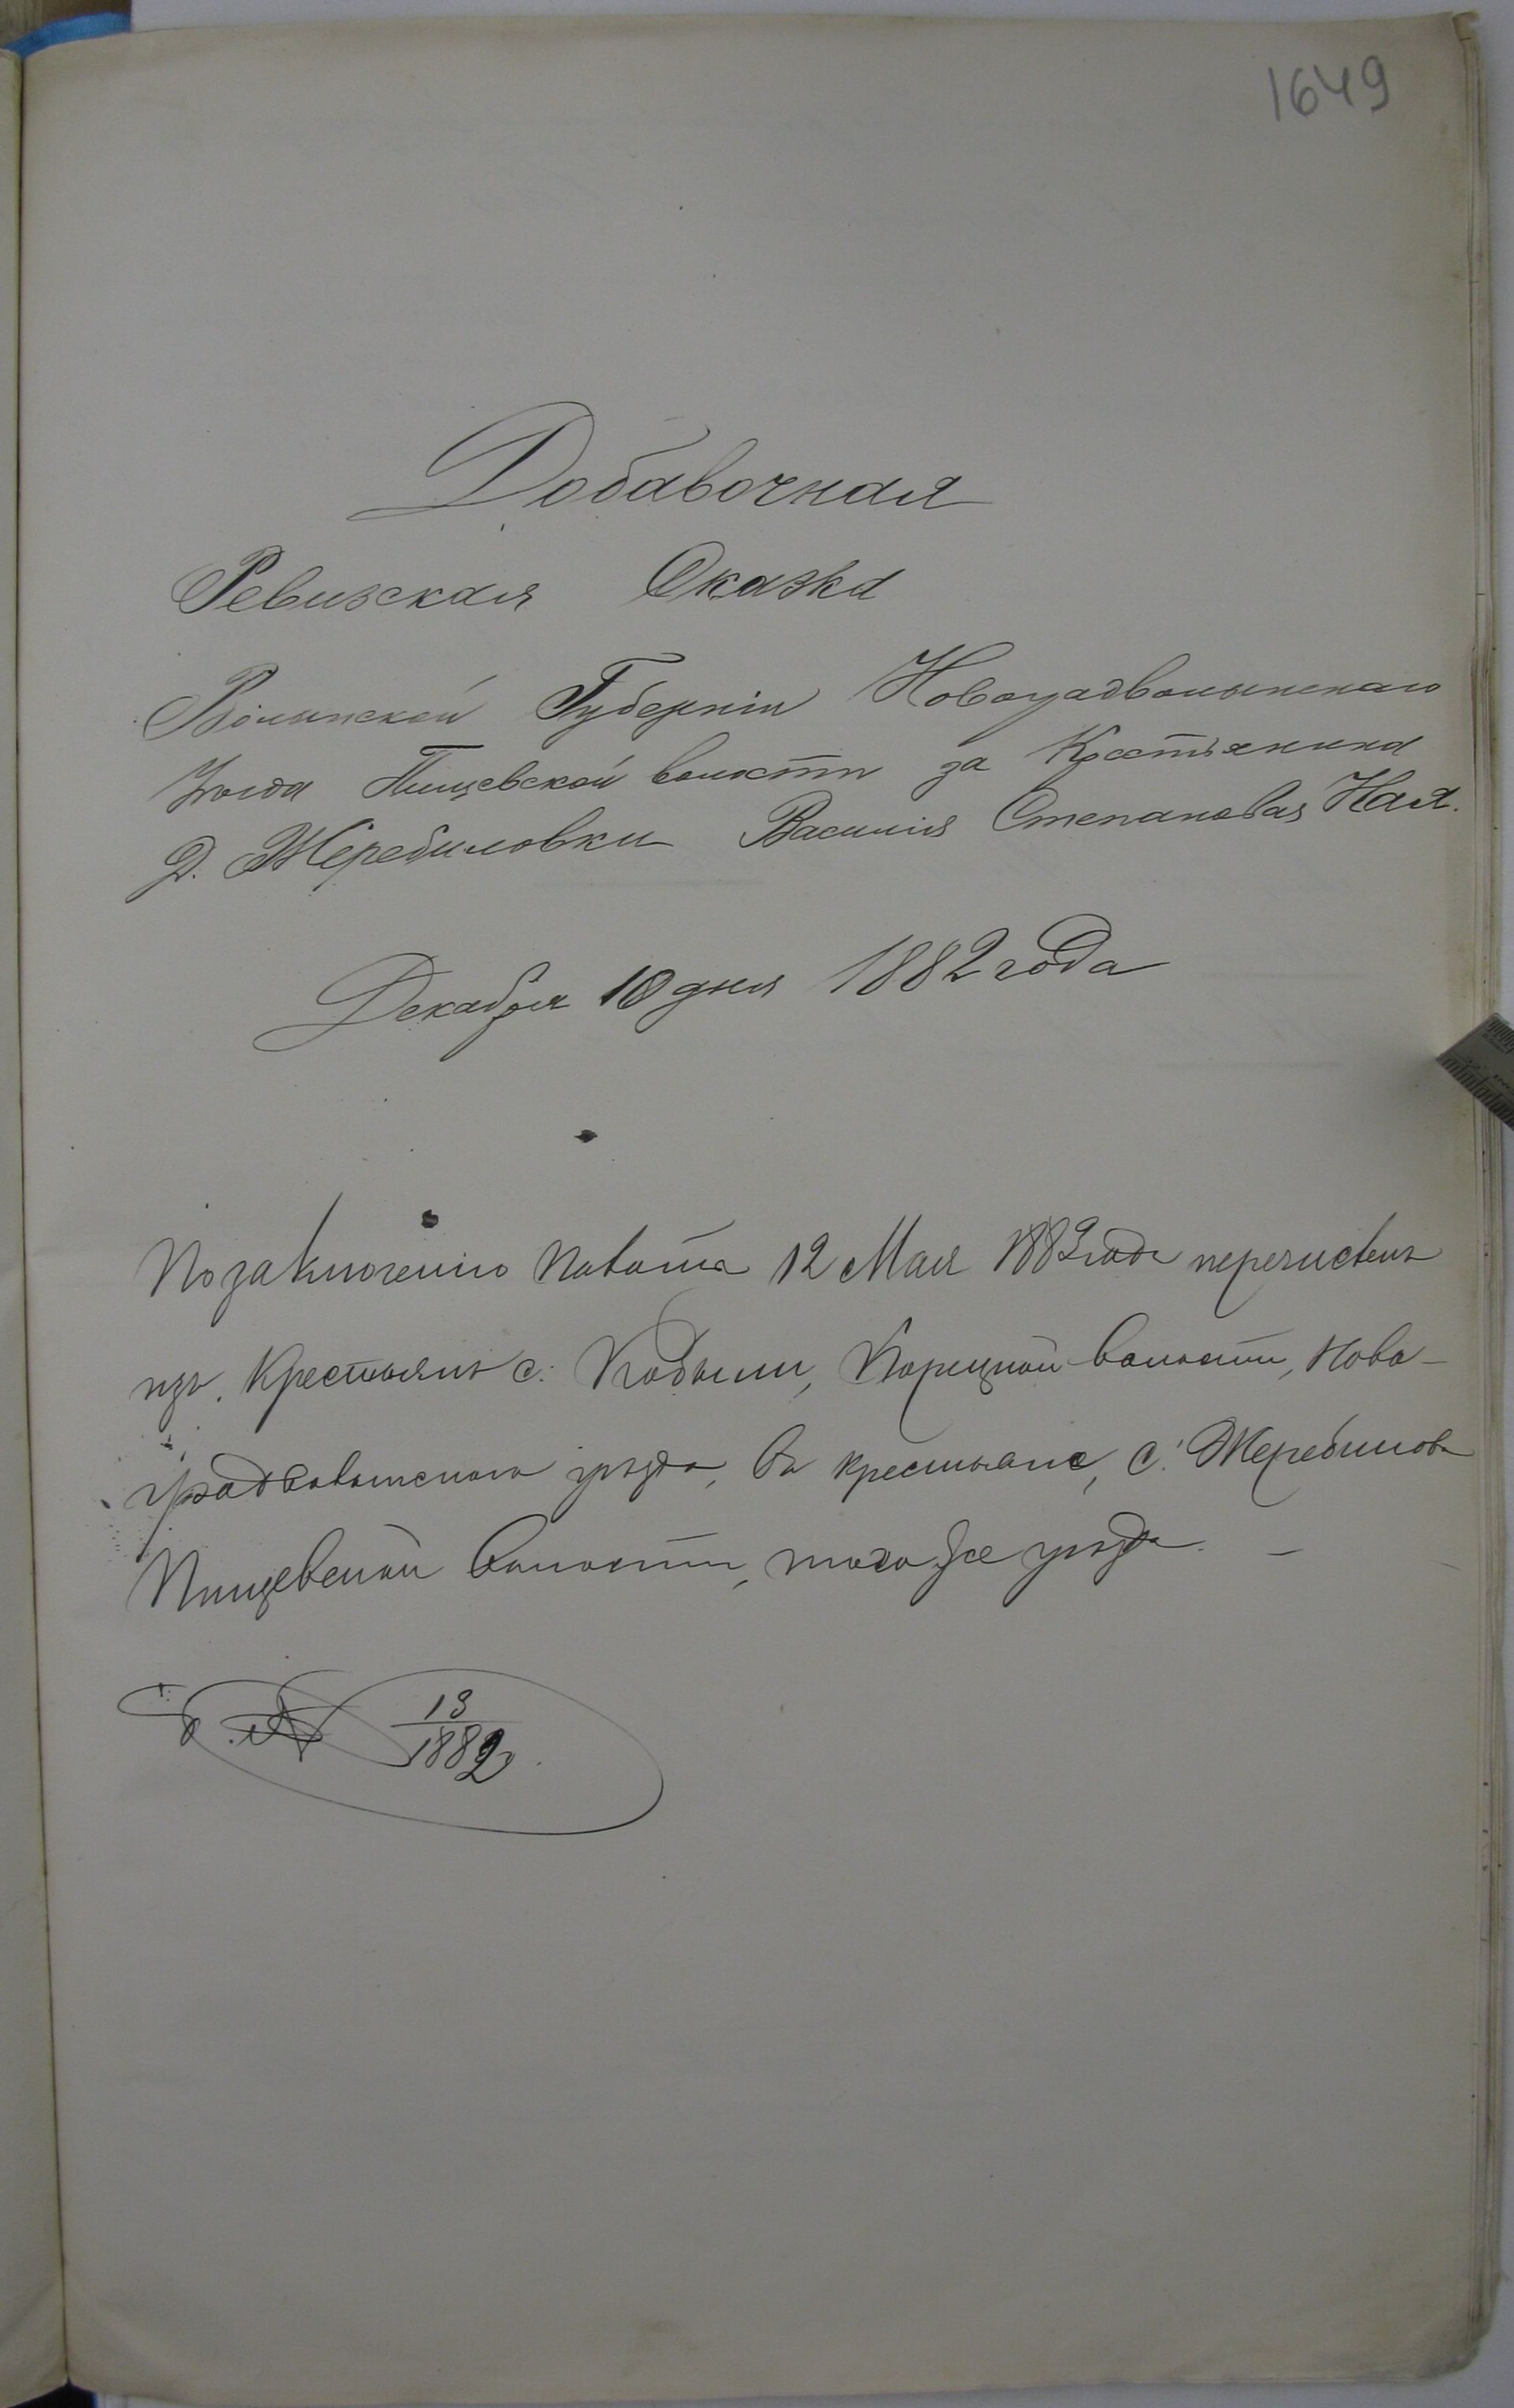 1649
Добавочная
Ревизская Сказка
Волынской Губерніи Новоградволынскаго
Уѣзда Пищевской волости за Крестьянина
Д. Жеребиловки Василія Степанова
Декабря 10 дня 1882 года
По заключенію Палаты 12 Мая 1882 года перечисленъ
изъ Крестьянъ с. Кобыли, Корецкой волости, Ново-
градволынскаго уѣзда, въ крестьяне, с. Жеребиловк
Пищевской волости, того же уѣзда. —
13
1882